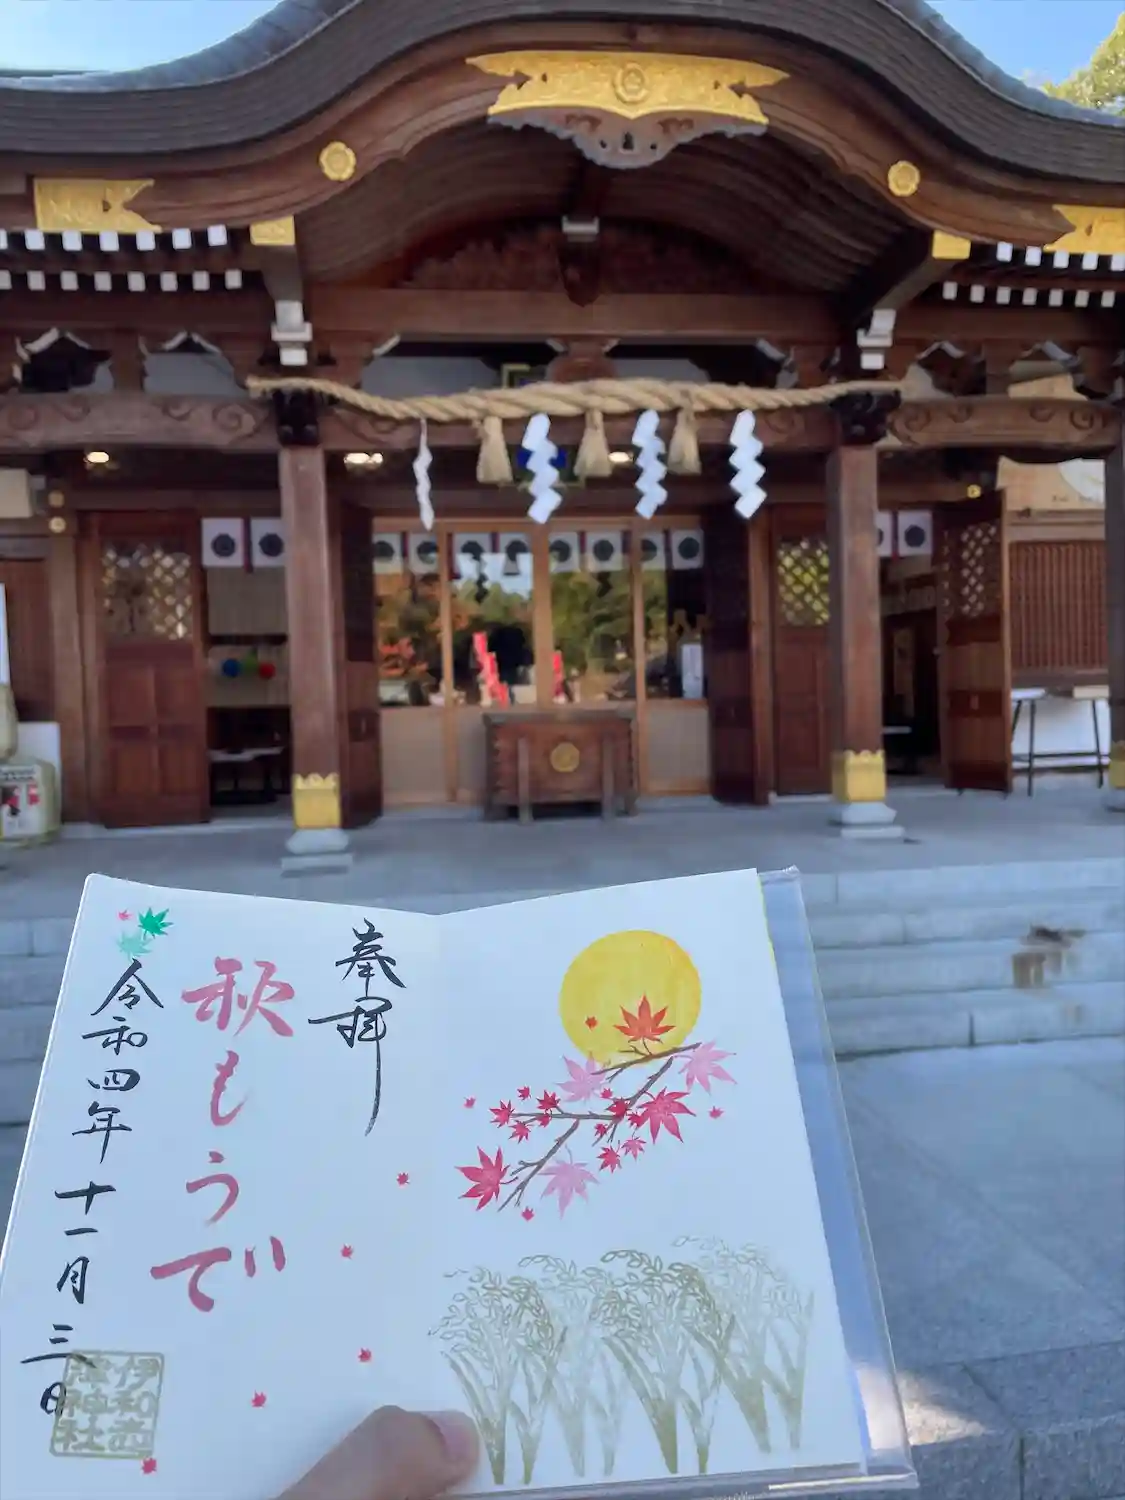 奉拝
秋もうで
令和四年 十一月 三日
伊和志
津神社